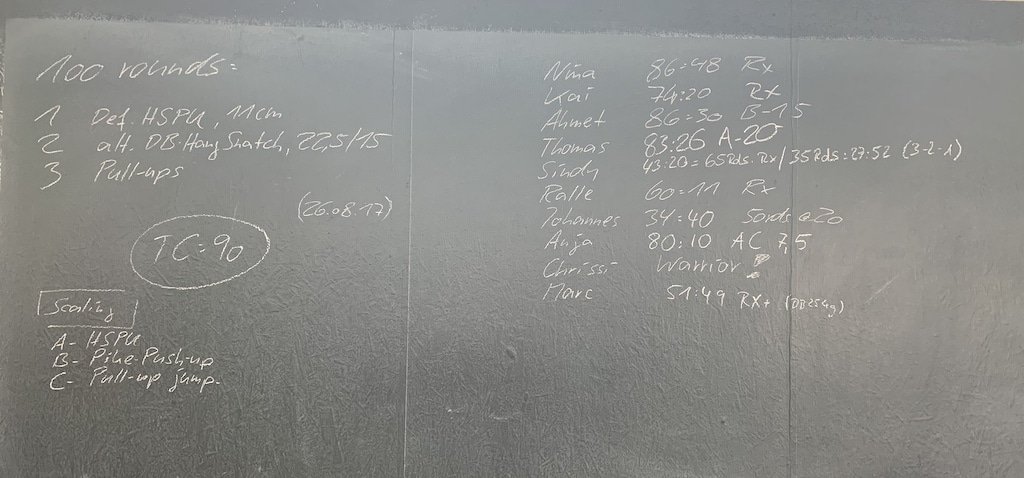 100 rounds:
1 Def. HSPU, 11cm
2 alt. DB-Hang Snatch, 22,5/15
3 Pull-ups
(26.08.17)
TC=90
Scaling
A- HSPU
B- Pike-Push-up
C- Pull-up jump.
Nina 86:48 Rx
Kai 74:20 Rx
Ahmet 86:30 B-15
Thomas 83:26 A-20
Sindy 43:20 = 65Rds. Rx / 35Rds: 27:52 (3-2-1)
Ralle 60:11 Rx
Johannes 34:40 50rds @20
Anja 80:10 AC 7,5
Chrissi Warrior
Marc 51:49 RX+ (DB 25kg)